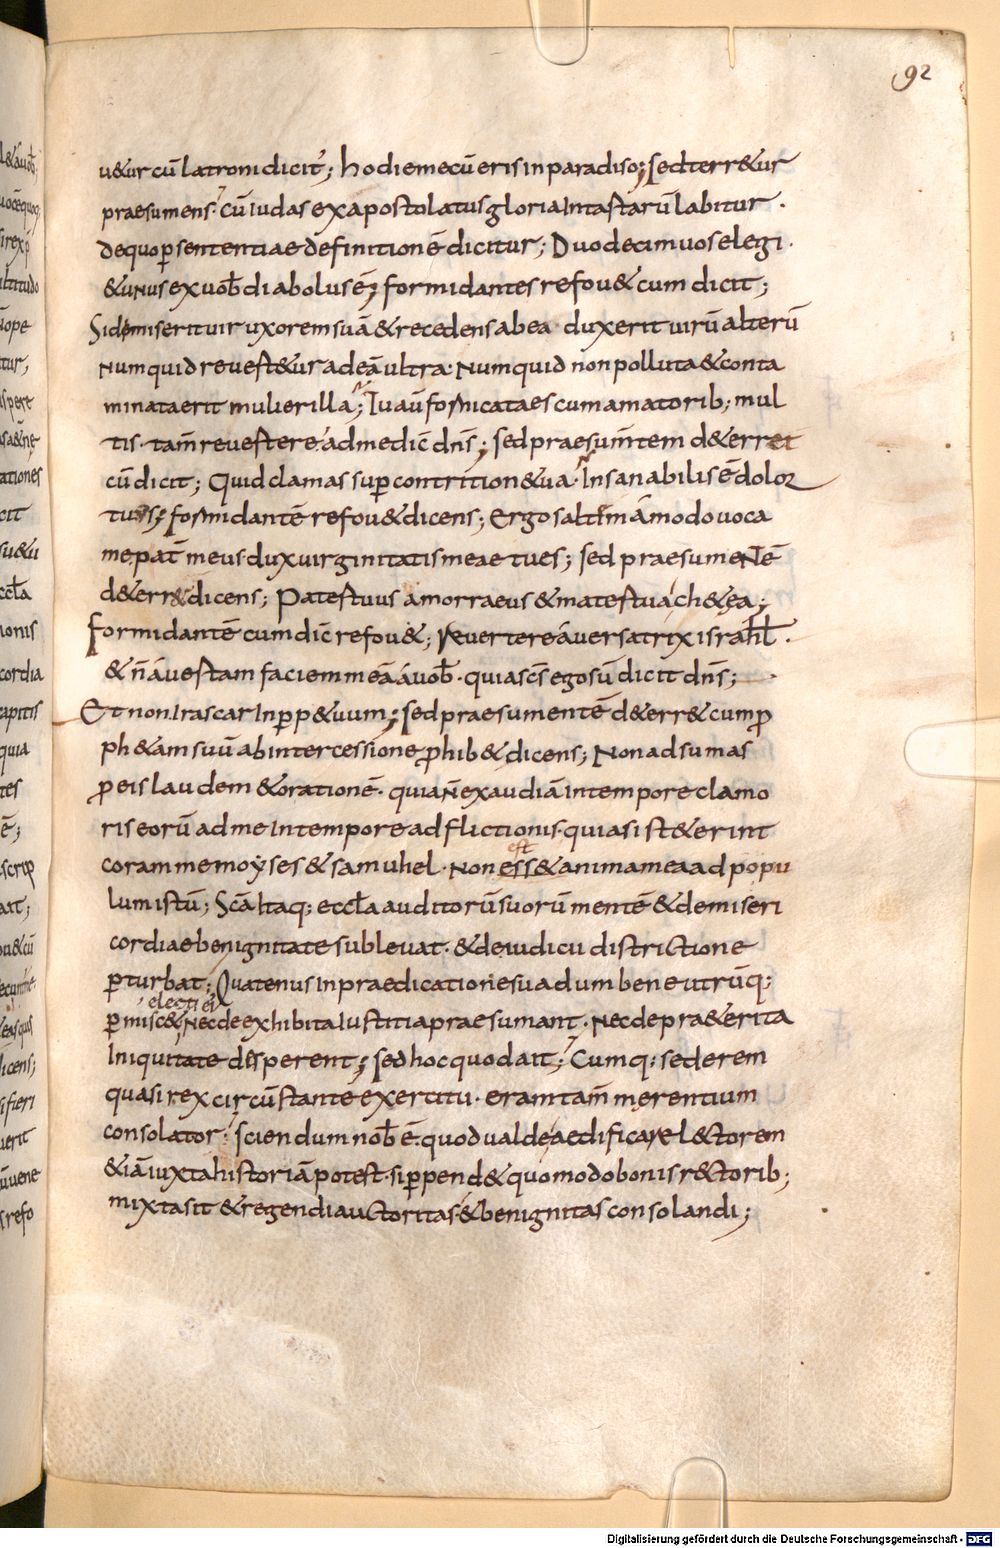 92
u&ur cū latroni dicit'; hodie mecū eris in paradiso; sed terr&ur
praesumens' cū iudas ex apostolatus gloria in tartarū labitur .
de quo p̱ sententiae definitionē dicitur; Duodecim uos elegi .
& unus ex uob̄ diabolus ē; formidantes refou& cum dicit;
Si dimiserit uir uxorem suā & recedens ab ea duxerit uirū alterū
Numquid reuert&ur ad eā ultra· Numquid non polluta & conta
minata erit mulier illa; Tu aū fornicata es cum amatorib; mul
tis · tam̄ reuertere ad me dic̄ dn̄s; sed praesum̄tem d&erret
cū dicit; Quid clamas sup̱ contrition& ua · Insanabilis ē dolor
tuus; formidantē refou& dicens; Ergo saltim ámodo uoca
me pat̄ meus dux uirginitatis meae tu es; sed praesumeNtē
d&err& dicens; Pater tuus amorraeus & mater tua ch&ęa;
formidantē cum dic̄ refou&; Reuertere áuersatrix israhł .
& n̄ áuertam faciem meā á uob̄ · quia sc̄s ego sū dicit dn̄s;
Et non Irascar In p̱p&uum; sed praesumentē d&err& cum ꝓ
ph&am suū ab intercessione ꝓhib& dicens; Non adsumas
ꝓ eis laudem & orationē · quia N̄ exaudiā In tempore clamo
ris eorū ad me In tempore adflictionis · quia si st&erint
est
coram me moyses & samuhel · Non ess& anima mea ad popu
lum istū; Sc̄a Itaq; eccła auditorū suorū mentē & de miseri
cordiae benignitate subleuat · & de iudicii districtione
p̱turbat; Quatenus In praedicatione sua dum bene utrūq;
electi ei
p̱misc& Nec de exhibita Iustitia praesumant · Nec de pra&erita
Iniquitate desperent; sed hoc quod ait; Cumq; sederem
quasi rex circūstante exercitu · eram tam̄ merentium
consolator; sciendum nob̄ ē · quod ualde aedificare l&torem
& iā iuxta historiā potest · si p̱pend& quomodo bonis r&torib;
mixta sit & regendi auctoritas & benignitas consolandi;
Digitalisierung gefördert durch die Deutsche Forschungsgemeinschaft - DFG